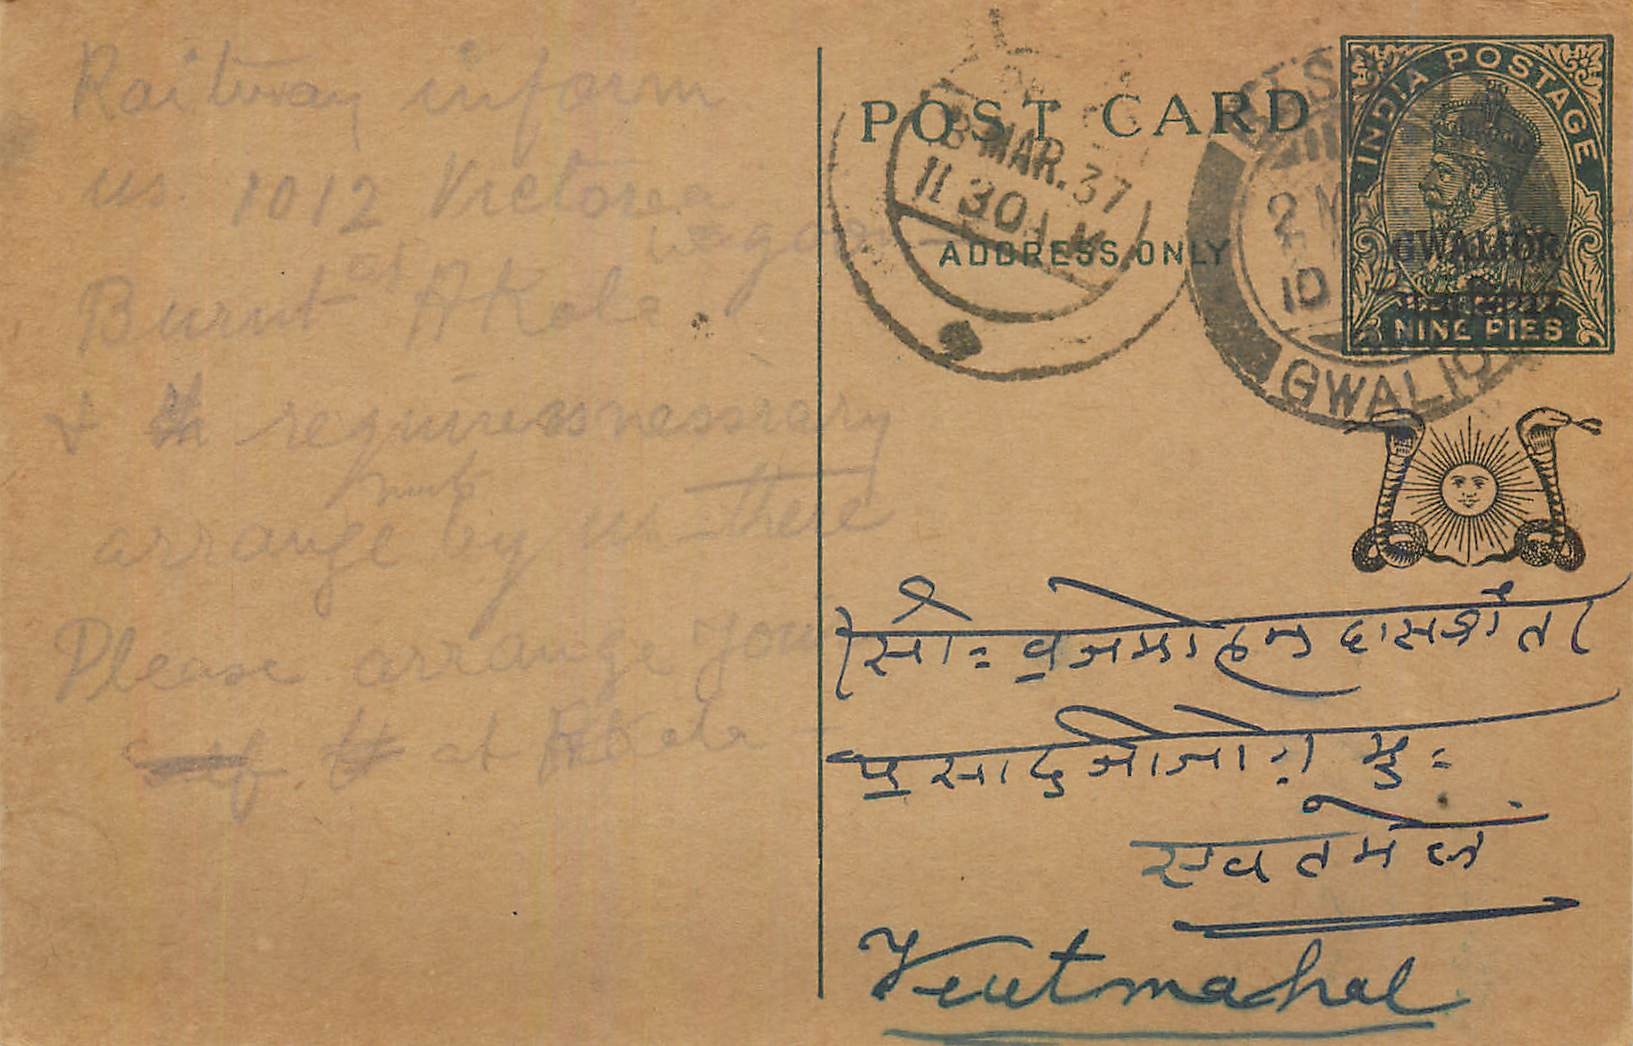 Railway inform
us. 1012 Victorea
wagon
Burnt at Akola
& requires nessrary
arrange by us there
Please arrange your
self. at Akola
POST CARD
ADDRESS ONLY
8 MAR. 37
11 30 A.M.
INDIA POSTAGE
GWALIOR
NINE PIES
2 M
10
GWALIO
सी॰ व्रजमोहन दास सी त
प्रसाद जी जोग मु॰
एवतमेल
Yeutmahal